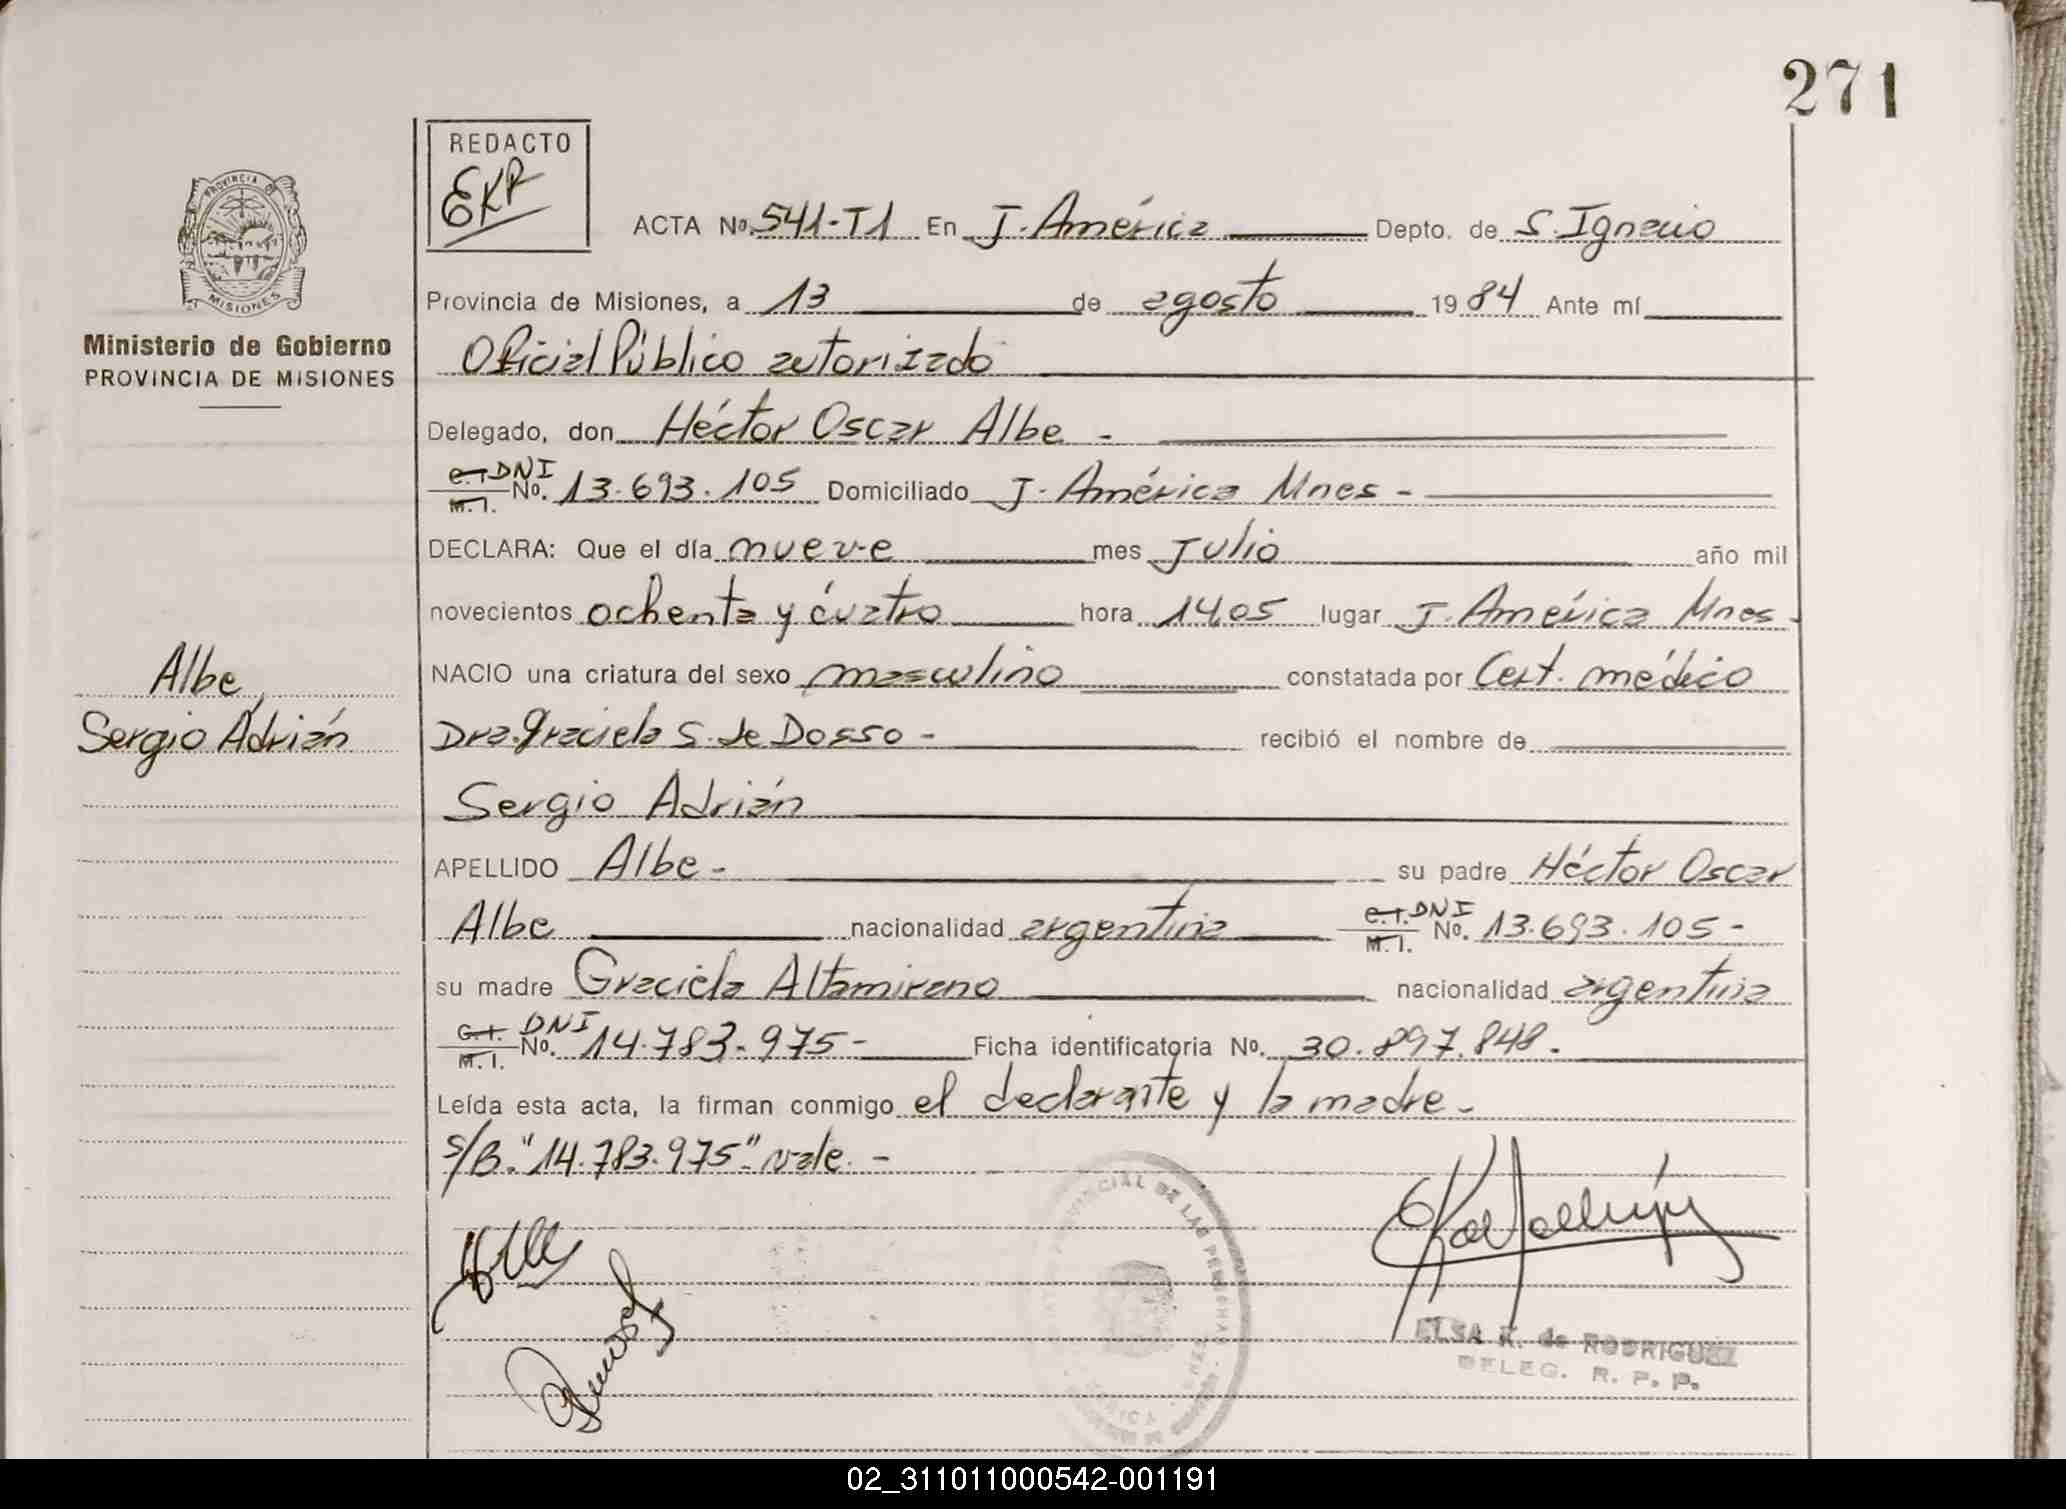 271
REDACTO
EKR
PROVINCIA DE
MISIONES
Ministerio de Gobierno
PROVINCIA DE MISIONES
Albe,
Sergio Adrián
ACTA No. 541-T1 En J. América Depto. de S. Ignacio
Provincia de Misiones, a 13 de agosto 1984 Ante mí
Oficial Público autorizado
Delegado, don Héctor Oscar Albe -
C.I. DNI
M.I. No. 13.693.105 Domiciliado J. América Mnes -
DECLARA: Que el día nueve mes Julio año mil
novecientos ochenta y cuatro hora 14,05 lugar J. América Mnes -
NACIO una criatura del sexo masculino constatada por Cert. médico
Dra. Graciela S. de Dosso - recibió el nombre de
Sergio Adrián
APELLIDO Albe - su padre Héctor Oscar
Albe nacionalidad argentina C.I. DNI M.I. No. 13.693.105 -
su madre Graciela Altamirano nacionalidad argentina
C.I. DNI M.I. No. 14.783.975 - Ficha identificatoria No. 30.897.848.
Leída esta acta, la firman conmigo el declarante y la madre -
S/B. "14.783.975" vale. -
PROVINCIAL DE LAS PERSONAS
ELSA K. de RODRIGUEZ
DELEG. R. P. P.
02_311011000542-001191